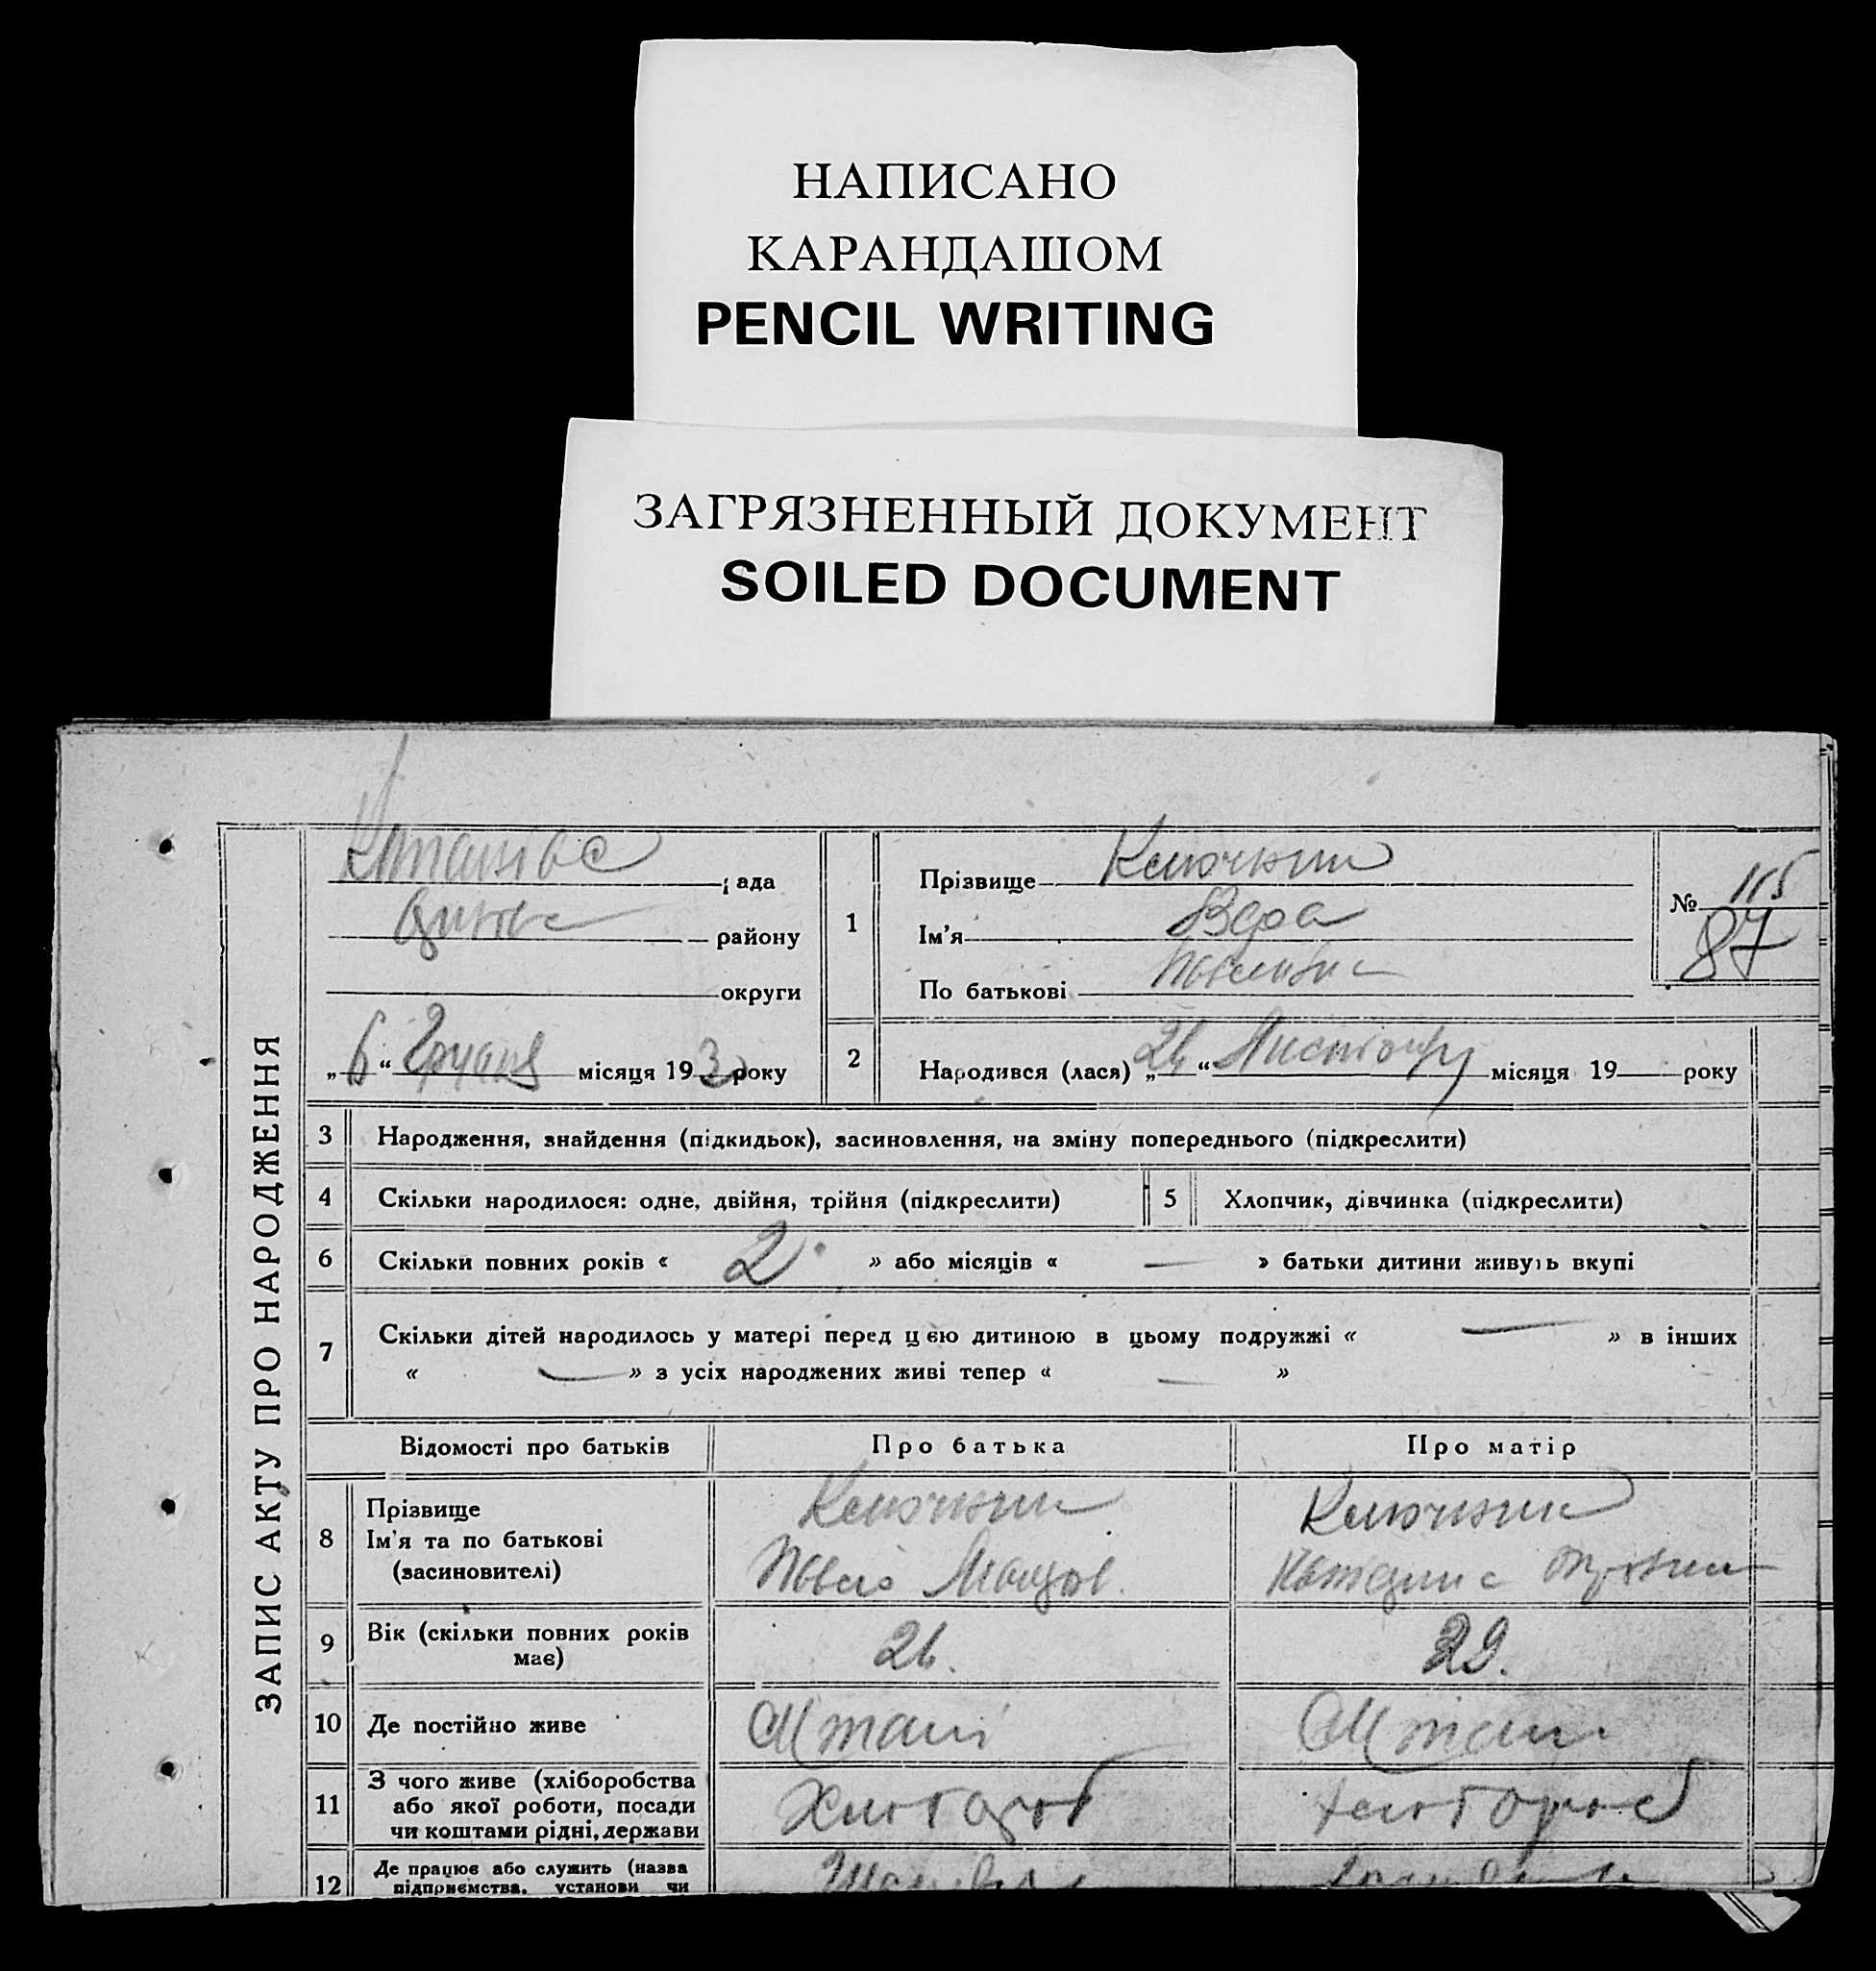 НАПИСАНО
КАРАНДАШОМ
PENCIL WRITING
ЗАГРЯЗНЕННЫЙ ДОКУМЕНТ
SOILED DOCUMENT
ЗАПИС АКТУ ПРО НАРОДЖЕННЯ
рада
району
округи
„6“ Грудня місяця 193 року
1
Прізвище
Ім'я Вера
По батькові
№ 115
87
2
Народився (лася) „26“ Листопаду місяця 19 року
3 Народження, знайдення (підкидьок), засиновлення, на зміну попереднього (підкреслити)
4 Скільки народилося: одне, двійня, трійня (підкреслити) 5 Хлопчик, дівчинка (підкреслити)
6 Скільки повних років « 2 » або місяців « — » батьки дитини живуть вкупі
7 Скільки дітей народилось у матері перед цією дитиною в цьому подружжі « — » в інших
« — » з усіх народжених живі тепер « — »
Відомості про батьків Про батька Про матір
8 Прізвище
Ім'я та по батькові
(засиновителі)
Павло
9 Вік (скільки повних років
має)
26. 29.
10 Де постійно живе
11 З чого живе (хліборобства
або якої роботи, посади
чи коштами рідні, держави
12 Де працює або служить (назва
підприємства, установи чи